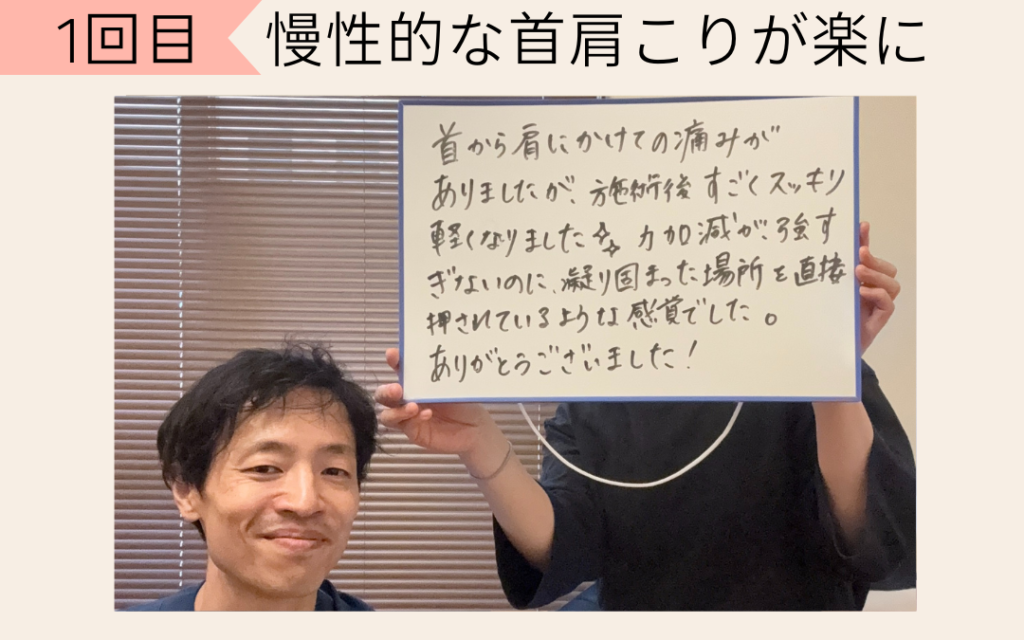 1回目
慢性的な首肩こりが楽に
首から肩にかけての痛みが
ありましたが、施術後すごくスッキリ
軽くなりました✨ 力加減が、強す
ぎないのに、凝り固まった場所を直接
押されているような感覚でした。
ありがとうございました!